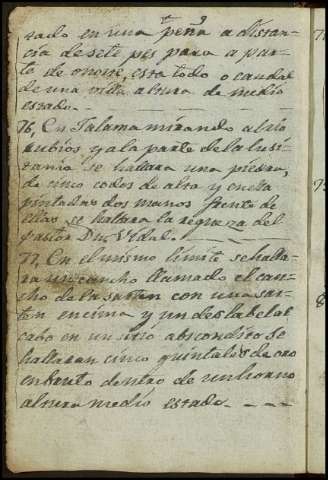 zado en una peña a distan-
cia de sete pes para a par-
te de onorse, esta todo o caudal
de una villa altura de medio
estado.
76, En Talama mirando al rio
rubios y a la parte de la lusi-
tania se hallara una piedra,
de cinco codos de alta y en ella
pintadas dos manos frente de
ellas se hallara la riqueza del
pastor Dn. Vidal.
77, En el mismo limit se halla-
ra un cancho llamado el can-
cho de la sarten con una sar-
ten encima y un des la bel al
cabo en un sitio abscondito se
hallaran cinco quintales de oro
en bruto dentro de un horno
altura medio estado.